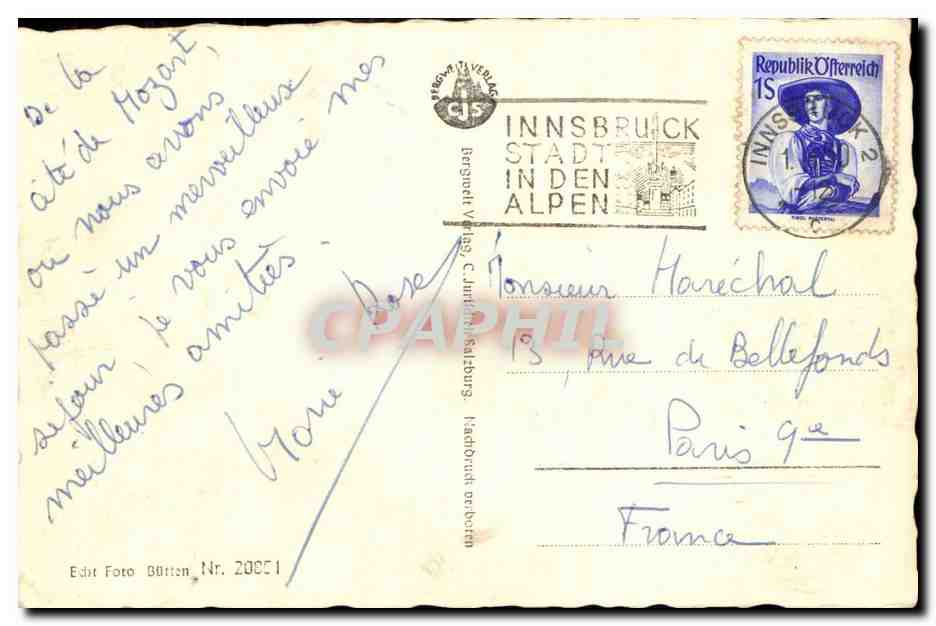 De la
cité de Mozart,
où nous avons
passé un merveilleux
séjour, je vous envoie mes
meilleures amitiés -
Marie-Rose
BERGWELT VERLAG
CJS
INNSBRUCK
STADT
IN DEN
ALPEN
Republik Österreich
1S
INNSBRUCK 2
Bergwelt Verlag, C. Jurischek Salzburg. Nachdruck verboten
Monsieur Maréchal
13, Rue de Bellefonds
Paris 9e
France
Echt Foto Bütten Nr. 20861
CPAPHIL